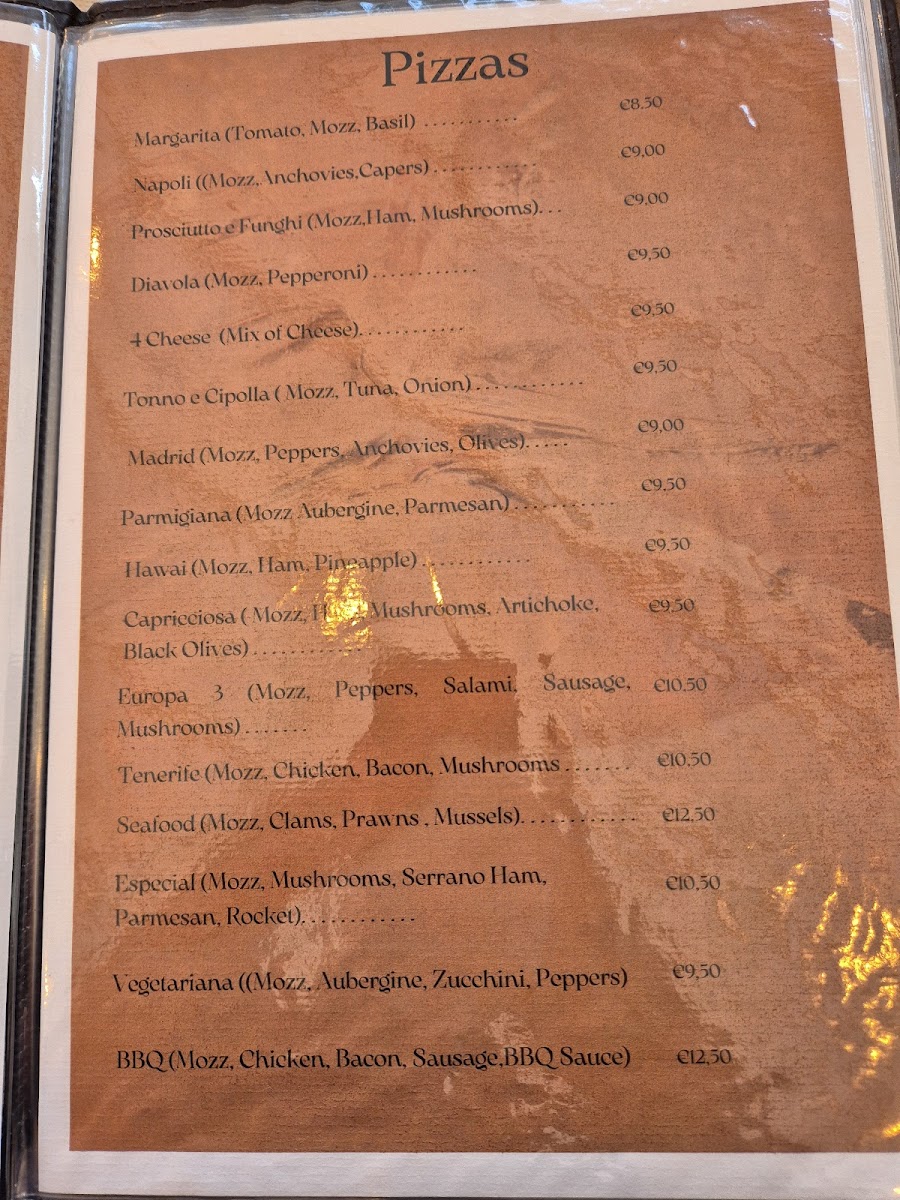 Pizzas
Margarita (Tomato, Mozz, Basil) ........... €8.50
Napoli ((Mozz,Anchovies,Capers)............ €9,00
Prosciutto e Funghi (Mozz,Ham, Mushrooms)... €9,00
Diavola (Mozz, Pepperoni)............ €9,50
4 Cheese (Mix of Cheese)............ €9,50
Tonno e Cipolla ( Mozz, Tuna, Onion)............ €9,50
Madrid (Mozz, Peppers, Anchovies, Olives)..... €9,00
Parmigiana (Mozz Aubergine, Parmesan)............ €9,50
Hawai (Mozz, Ham, Pineapple)............ €9,50
Capricciosa ( Mozz, Mushrooms, Artichoke, €9,50
Black Olives)............
Europa 3 (Mozz, Peppers, Salami, Sausage, €10,50
Mushrooms).......
Tenerife (Mozz, Chicken, Bacon, Mushrooms....... €10,50
Seafood (Mozz, Clams, Prawns , Mussels)............ €12,50
Especial (Mozz, Mushrooms, Serrano Ham, €10,50
Parmesan, Rocket)............
Vegetariana ((Mozz, Aubergine, Zucchini, Peppers) €9,50
BBQ (Mozz, Chicken, Bacon, Sausage,BBQ Sauce) €12,50